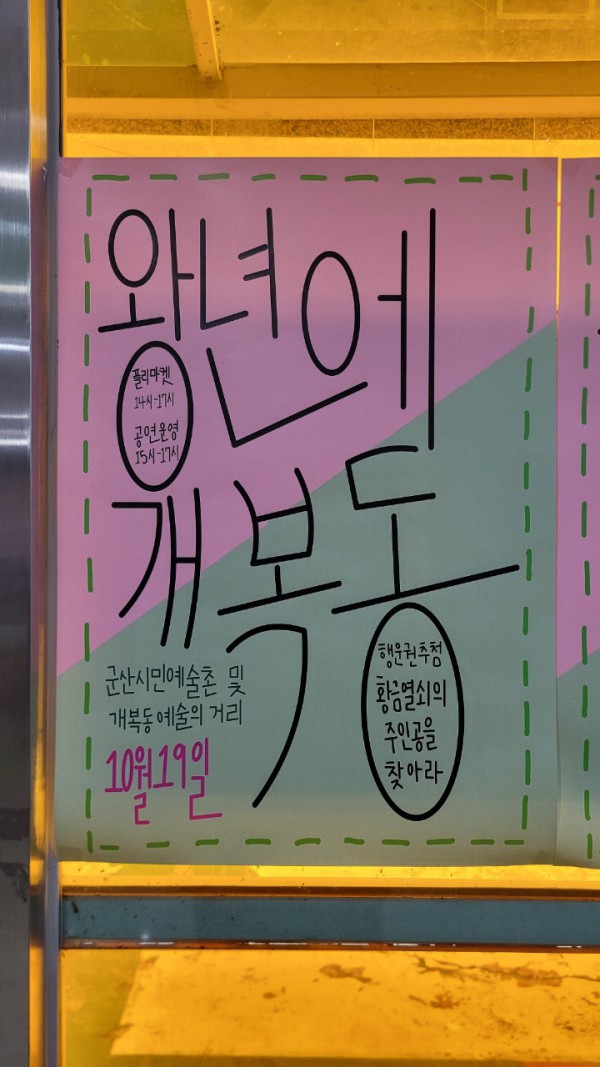 왕년에
플리마켓
14시-17시
공연운영
15시-17시
개복동
군산시민예술촌 및
개복동예술의 거리
10월19일
행운권추첨
황금열쇠의
주인공을
찾아라